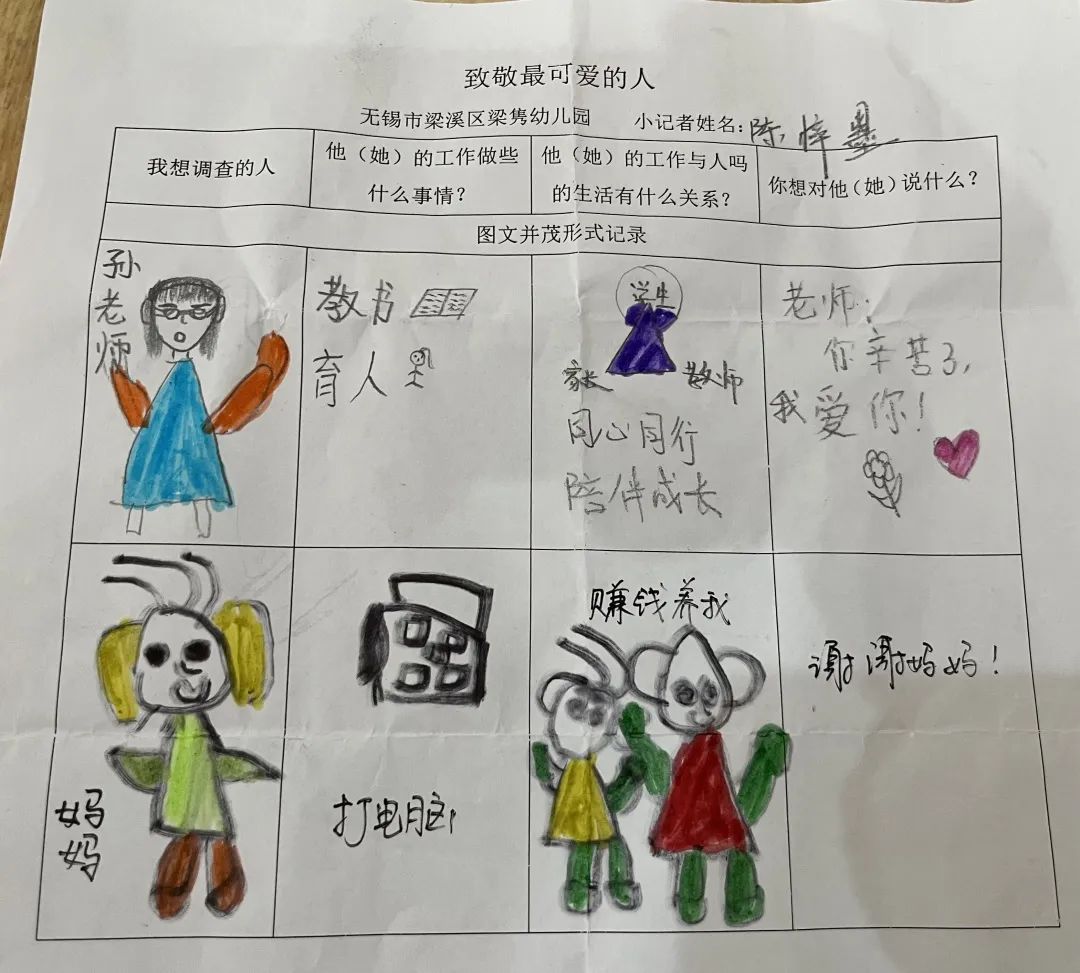 致敬最可爱的人
无锡市梁溪区梁隽幼儿园 小记者姓名:陈梓墨
我想调查的人
他（她）的工作做些
什么事情？
他（她）的工作与人吗
的生活有什么关系？
你想对他（她）说什么？
图文并茂形式记录
孙
老
师
教书
育人
学生
家长 教师
同心同行
陪伴成长
老师：
你辛苦了，
我爱你！
妈
妈
打电脑
赚钱养我
谢谢妈妈！